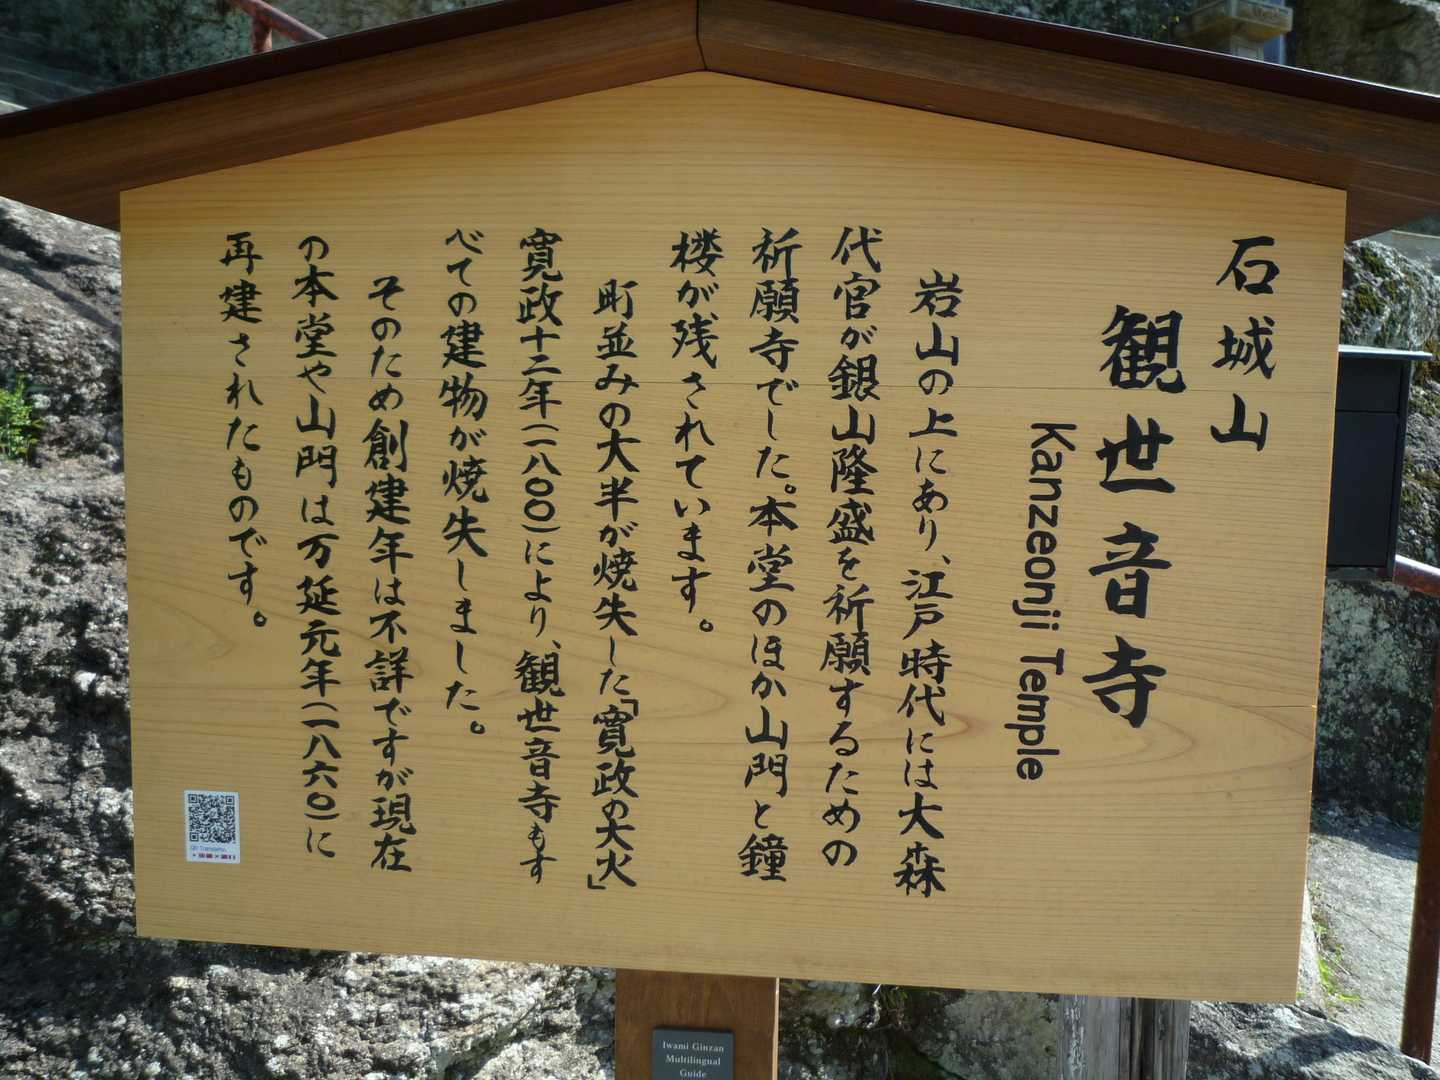 石城山
観世音寺
Kanzeonji Temple
岩山の上にあり、江戸時代には大森
代官が銀山隆盛を祈願するための
祈願寺でした。本堂のほか山門と鐘
楼が残されています。
町並みの大半が焼失した「寛政の大火」
寛政十二年(一八〇〇)により、観世音寺もす
べての建物が焼失しました。
そのため創建年は不詳ですが現在
の本堂や山門は万延元年(一八六〇)に
再建されたものです。
QR Translator
Iwami Ginzan
Multilingual
Guide